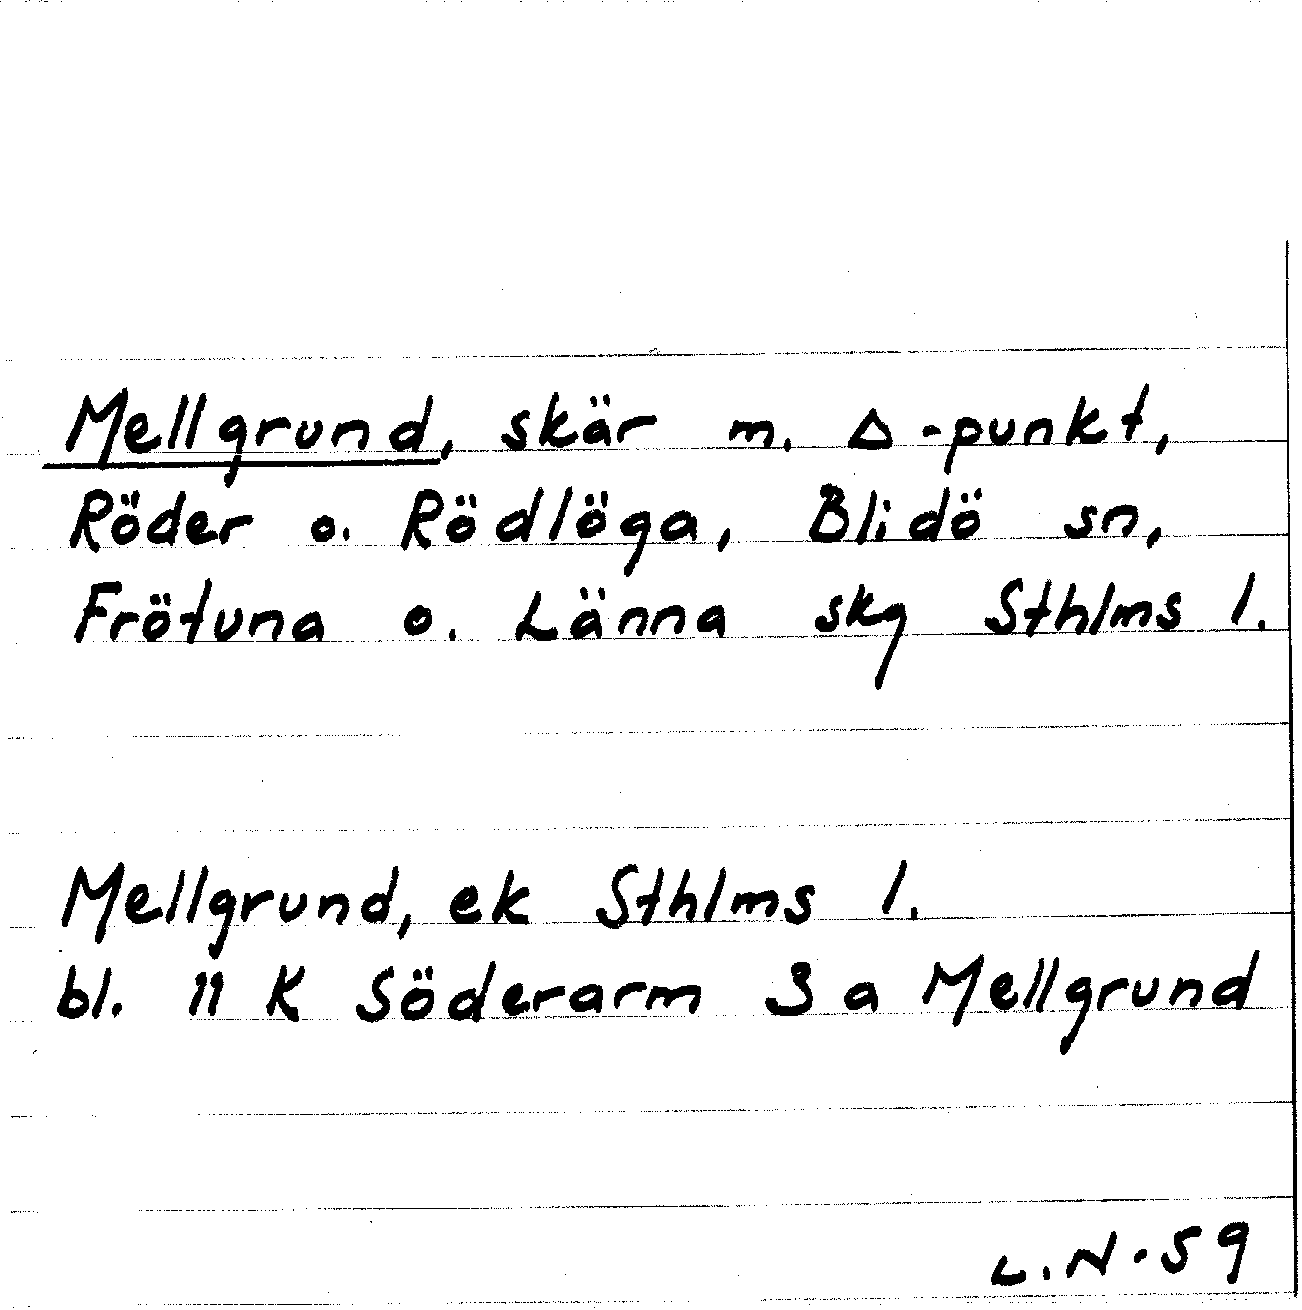 Mellgrund, skär m. △-punkt,
Röder o. Rödlöga, Blidö sn,
Frötuna o. Länna skg Sthlms l.
Mellgrund, ek Sthlms l.
bl. 11 K Söderarm 3 a Mellgrund
L.N-59